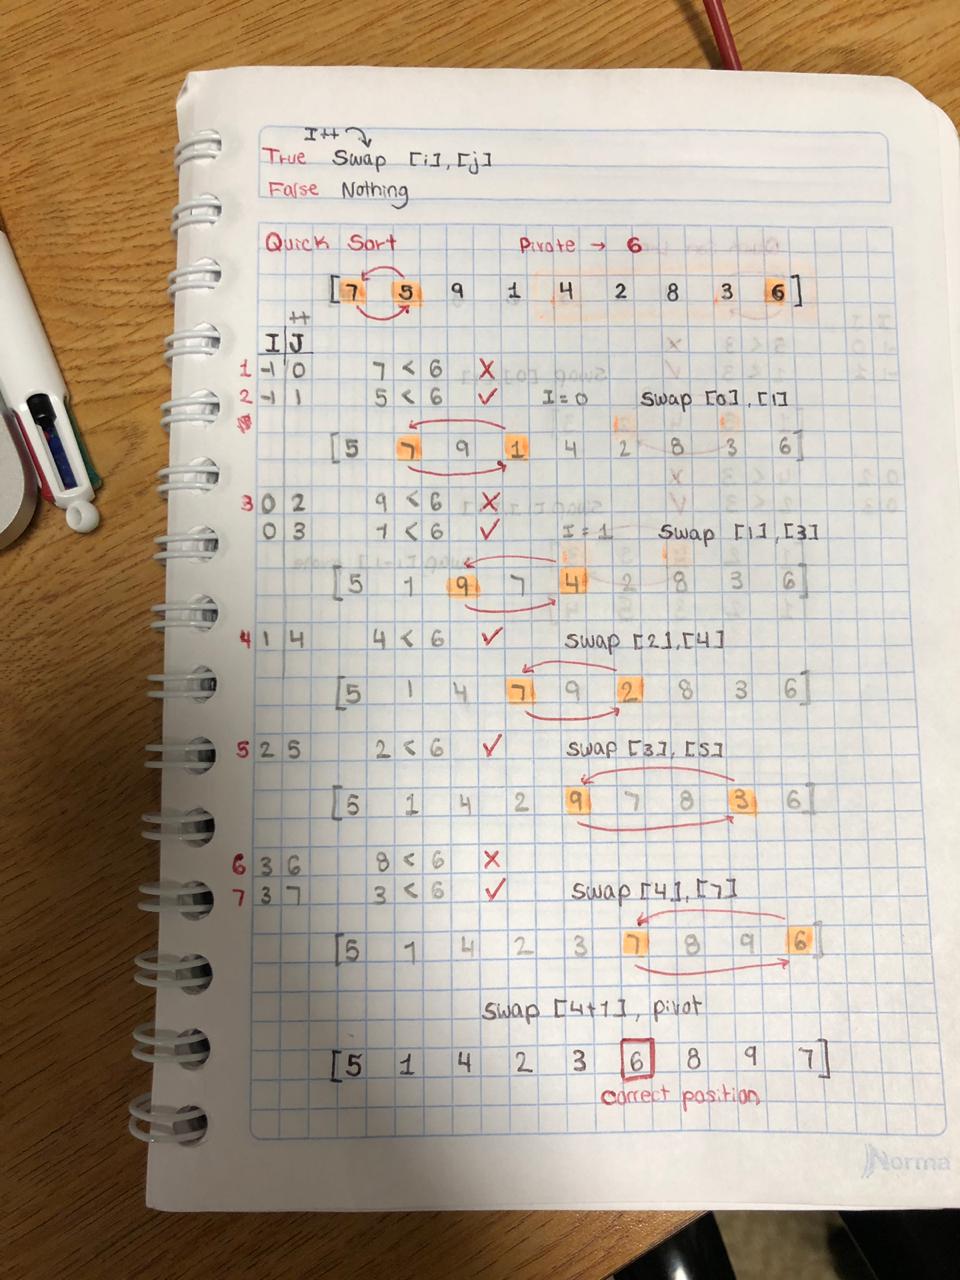 I++
True Swap [i], [j]
False Nothing
Quick Sort Pivote → 6
[7 5 9 1 4 2 8 3 6]
++
I J
1 -1 0 7 < 6 X
2 -1 1 5 < 6 ✓ I = 0 Swap [0], [1]
[5 7 9 1 4 2 8 3 6]
3 0 2 9 < 6 X
0 3 1 < 6 ✓ I = 1 Swap [1], [3]
[5 1 9 7 4 2 8 3 6]
4 1 4 4 < 6 ✓ swap [2], [4]
[5 1 4 7 9 2 8 3 6]
5 2 5 2 < 6 ✓ swap [3], [5]
[5 1 4 2 9 7 8 3 6]
6 3 6 8 < 6 X
7 3 7 3 < 6 ✓ swap [4], [7]
[5 1 4 2 3 7 8 9 6]
swap [4+1], pivot
[5 1 4 2 3 6 8 9 7]
correct position
Norma